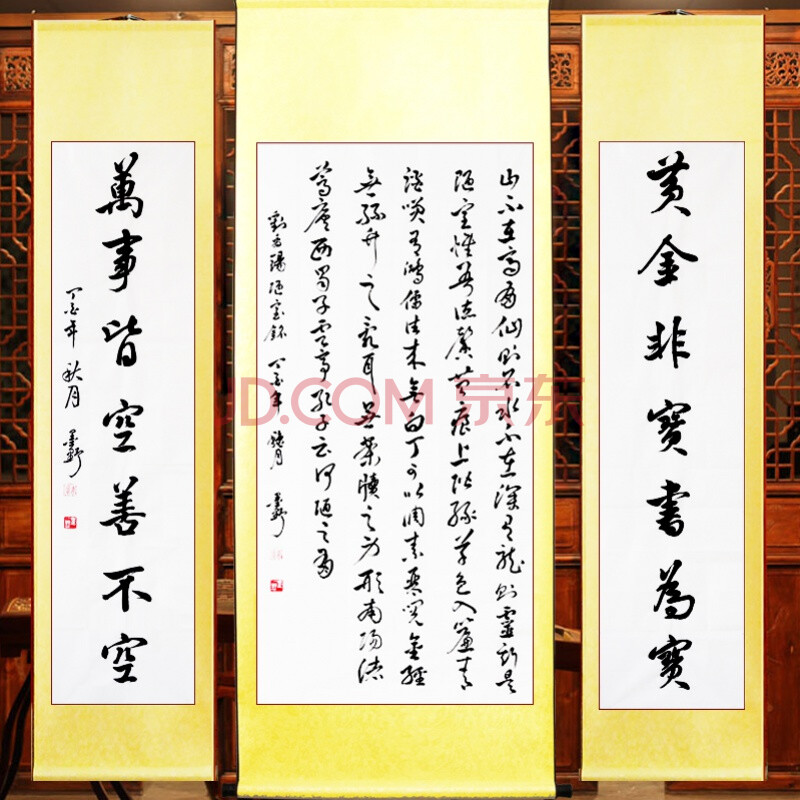 黄金非寶書為寶
山不在高有仙則名水不在深有龍則靈斯是
陋室惟吾德馨苔痕上階綠草色入簾青
談笑有鴻儒往來無白丁可以調素琴閱金經
無絲竹之亂耳無案牘之勞形南陽諸
葛廬西蜀子雲亭孔子云何陋之有
劉禹錫陋室銘 丁酉年 秋月
萬事皆空善不空
丁酉年 秋月
JD.COM 京东